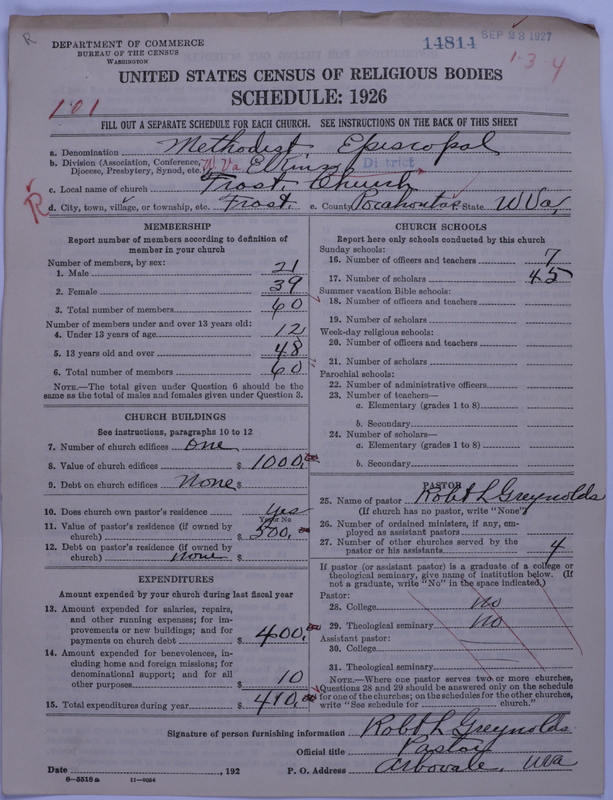 R
DEPARTMENT OF COMMERCE
BUREAU OF THE CENSUS
WASHINGTON
14814
SEP 28 1927
1-3-4
UNITED STATES CENSUS OF RELIGIOUS BODIES
SCHEDULE: 1926
101
FILL OUT A SEPARATE SCHEDULE FOR EACH CHURCH. SEE INSTRUCTIONS ON THE BACK OF THIS SHEET
a. Denomination Methodist Episcopal
b. Division (Association, Conference, Diocese, Presbytery, Synod, etc.) W. Va Elkins District
c. Local name of church Frost, Church
R
d. City, town, village, or township, etc. Frost. e. County Pocahontas f. State W Va,
MEMBERSHIP
Report number of members according to definition of
member in your church
Number of members, by sex:
1. Male 21
2. Female 39
3. Total number of members 60
Number of members under and over 13 years old:
4. Under 13 years of age 12
5. 13 years old and over 48
6. Total number of members 60
NOTE.—The total given under Question 6 should be the
same as the total of males and females given under Question 3.
CHURCH BUILDINGS
See instructions, paragraphs 10 to 12
7. Number of church edifices one
8. Value of church edifices $ 1000,
9. Debt on church edifices None $
10. Does church own pastor's residence yes
Yes or No
11. Value of pastor's residence (if owned by
church) $ 500,
12. Debt on pastor's residence (if owned by
church) none $
EXPENDITURES
Amount expended by your church during last fiscal year
13. Amount expended for salaries, repairs,
and other running expenses; for im-
provements or new buildings; and for
payments on church debt $ 400,
14. Amount expended for benevolences, in-
cluding home and foreign missions; for
denominational support; and for all
other purposes $ 10
15. Total expenditures during year $ 410,
CHURCH SCHOOLS
Report here only schools conducted by this church
Sunday schools:
16. Number of officers and teachers 7
17. Number of scholars 45
Summer vacation Bible schools:
18. Number of officers and teachers
19. Number of scholars
Week-day religious schools:
20. Number of officers and teachers
21. Number of scholars
Parochial schools:
22. Number of administrative officers
23. Number of teachers—
a. Elementary (grades 1 to 8)
b. Secondary
24. Number of scholars—
a. Elementary (grades 1 to 8)
b. Secondary
PASTOR
25. Name of pastor Robt L Greynolds
(If church has no pastor, write "None")
26. Number of ordained ministers, if any, em-
ployed as assistant pastors
27. Number of other churches served by the
pastor or his assistants 4
If pastor (or assistant pastor) is a graduate of a college or
theological seminary, give name of institution below. (If
not a graduate, write "No" in the space indicated.)
Pastor:
28. College no
29. Theological seminary no
Assistant pastor:
30. College
31. Theological seminary
NOTE.—Where one pastor serves two or more churches,
Questions 28 and 29 should be answered only on the schedule
for one of the churches; on the schedules for the other churches,
write "See schedule for church."
Signature of person furnishing information Robt L Greynolds
Official title Pastor
Date , 192 P. O. Address Arbovale, W Va
8-5518a 11-9054